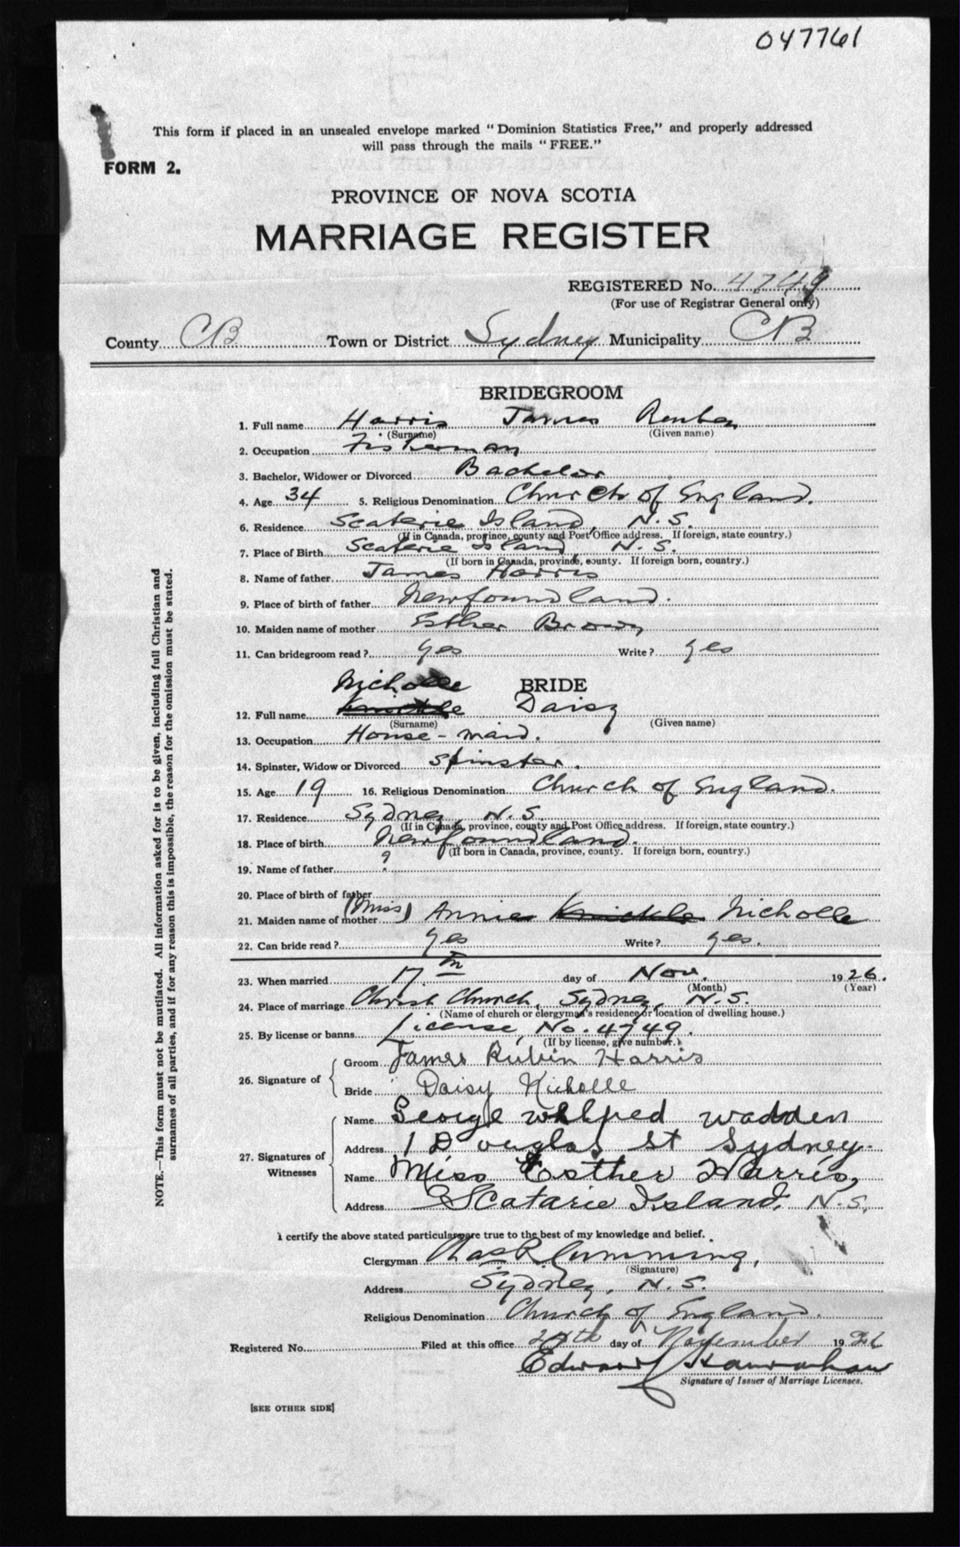 047761
This form if placed in an unsealed envelope marked "Dominion Statistics Free," and properly addressed
will pass through the mails "FREE."
FORM 2.
PROVINCE OF NOVA SCOTIA
MARRIAGE REGISTER
REGISTERED No. 4749
(For use of Registrar General only)
County CB Town or District Sydney Municipality CB
BRIDEGROOM
1. Full name Harris James Reuben
(Surname) (Given name)
2. Occupation Fisherman
3. Bachelor, Widower or Divorced Bachelor
4. Age 34 5. Religious Denomination Church of England.
6. Residence Scaterie Island, N.S.
(If in Canada, province, county and Post Office address. If foreign, state country.)
7. Place of Birth Scaterie Island, N.S.
(If born in Canada, province, county. If foreign born, country.)
8. Name of father James Harris
9. Place of birth of father Newfoundland.
10. Maiden name of mother Esther Brown
11. Can bridegroom read? Yes Write? Yes
Nicholle BRIDE
12. Full name Daisy
(Surname) (Given name)
13. Occupation House-maid.
14. Spinster, Widow or Divorced Spinster.
15. Age 19 16. Religious Denomination Church of England.
17. Residence Sydney N.S.
(If in Canada, province, county and Post Office address. If foreign, state country.)
18. Place of birth Newfoundland.
(If born in Canada, province, county. If foreign born, country.)
19. Name of father ?
20. Place of birth of father
21. Maiden name of mother (Miss) Annie Nicholle
22. Can bride read? Yes Write? Yes.
23. When married 17th day of Nov. 1926.
(Month) (Year)
24. Place of marriage Christ Church, Sydney, N.S.
(Name of church or clergyman's residence or location of dwelling house.)
25. By license or banns License, No. 4749.
(If by license, give number.)
26. Signature of Groom James Rubin Harris
Bride Daisy Nicholle
27. Signatures of Witnesses
Name George Wilfred Wadden
Address 1 Douglas St Sydney.
Name Miss Esther Harris,
Address Scatarie Island. N.S.
I certify the above stated particulars are true to the best of my knowledge and belief.
Clergyman Chas R. Cumming,
(Signature)
Address Sydney, N.S.
Religious Denomination Church of England.
Registered No. Filed at this office day of November 1926
Edward Hanrahan
Signature of Issuer of Marriage Licenses.
[SEE OTHER SIDE]
NOTE.—This form must not be mutilated. All information asked for is to be given, including full Christian and
surnames of all parties, and if for any reason this is impossible, the reason for the omission must be stated.